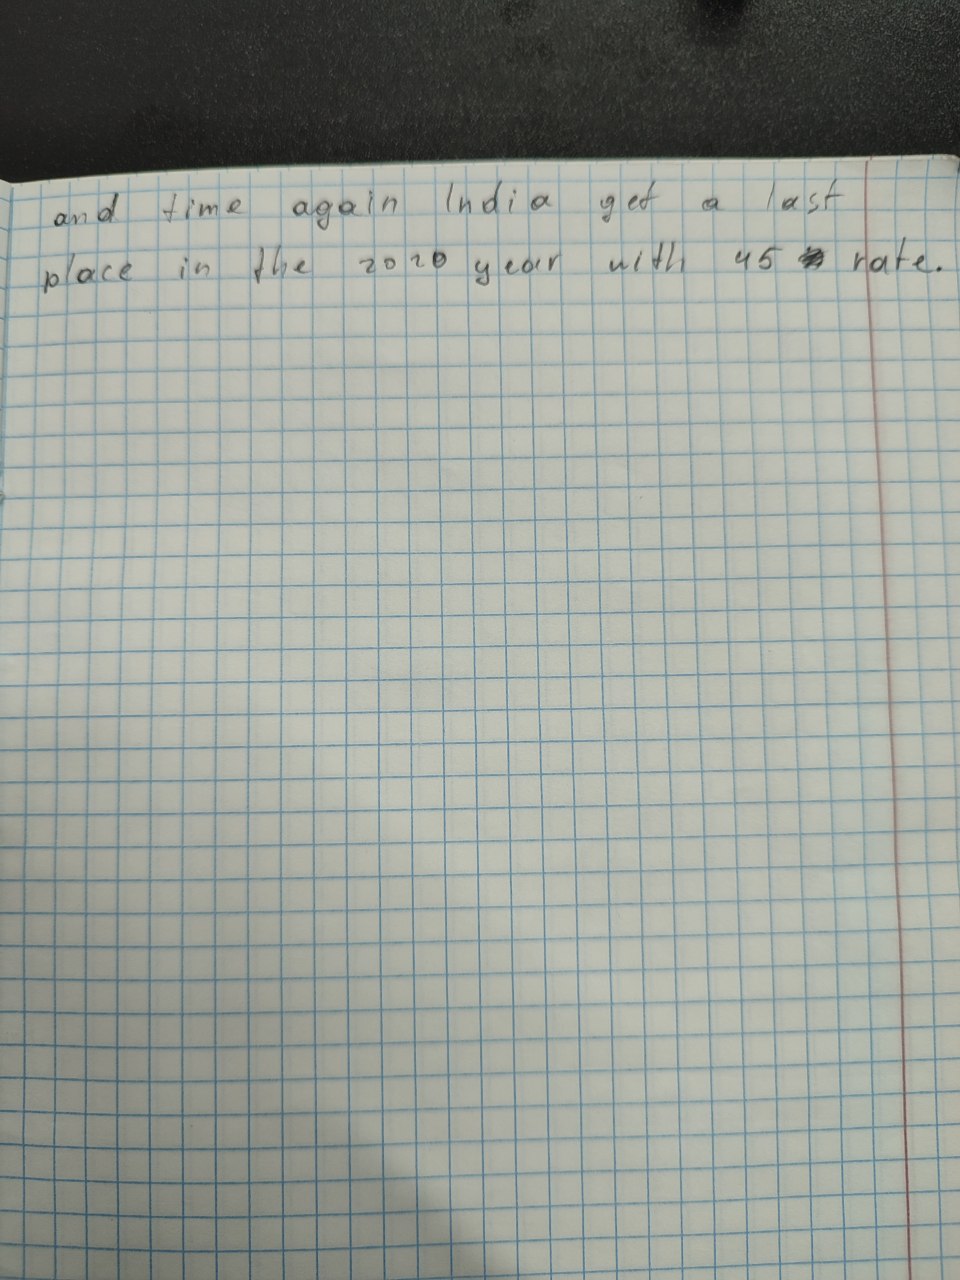 and time again India get a last
place in the 2020 year with 45 rate.